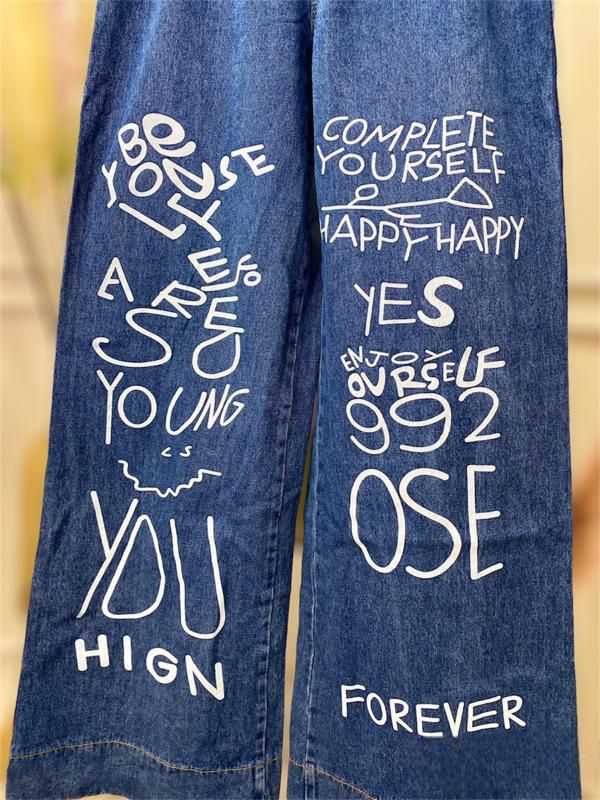 Be
YONSE
LY
A RE EFO
SEU
YOUNG
YOU
HIGN
COMPLETE
YOURSELF
HAPPY HAPPY
YES
ENJOY ELF
OURS
992
OSE
FOREVER